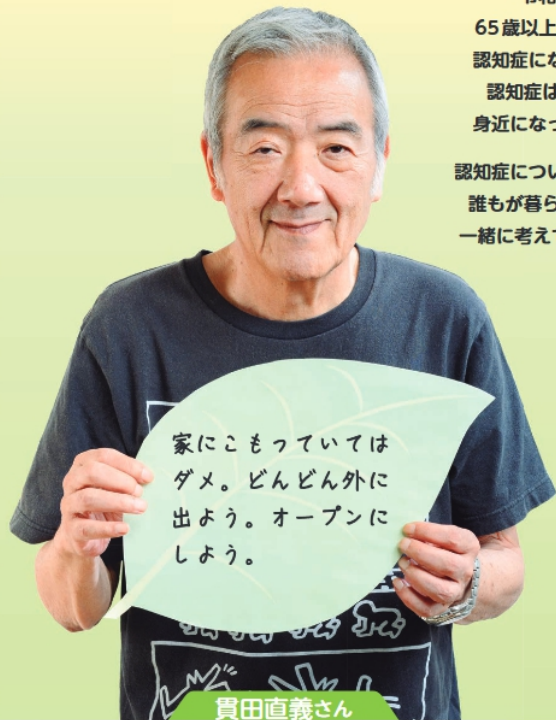 65歳以上
認知症にな
認知症は
身近になっ
認知症につい
誰もが暮ら
一緒に考えて
家にこもっていては
ダメ。どんどん外に
出よう。オープンに
しよう。
貫田直義さん